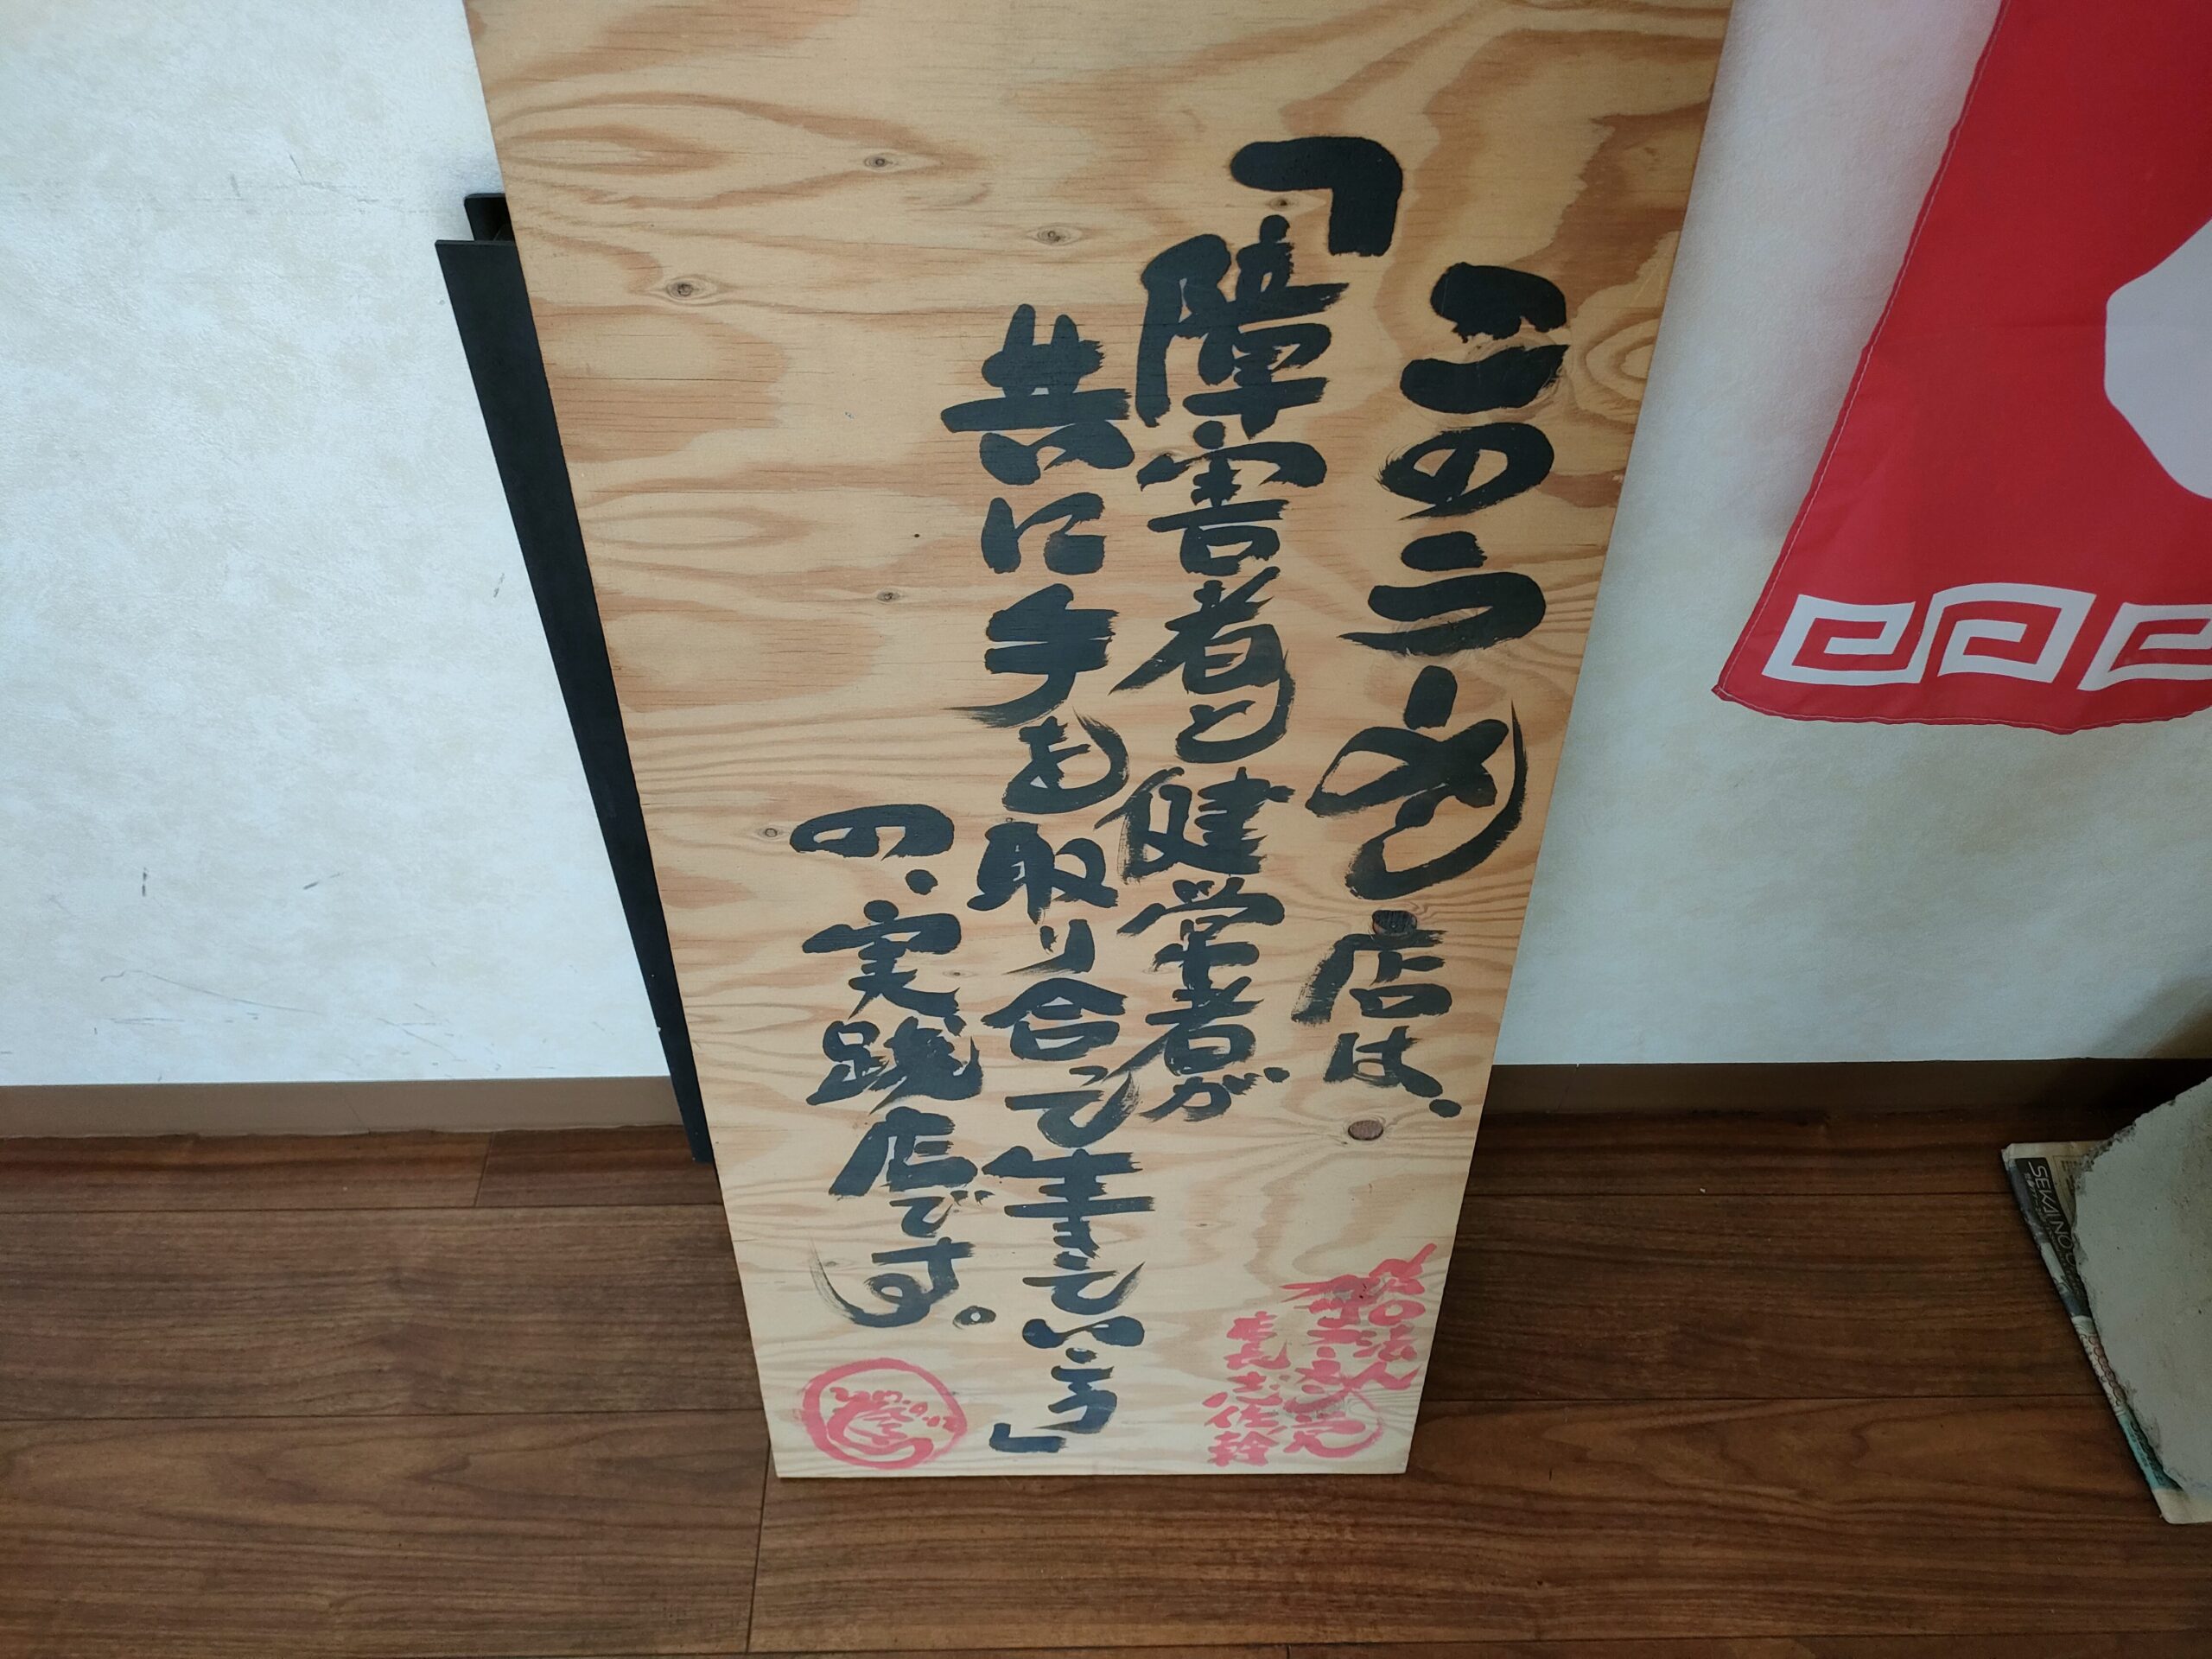 このらーめん店は、
「障害者と健常者が
共に手を取り合って生きていこう」
の、実践店です。
SEKAI NO